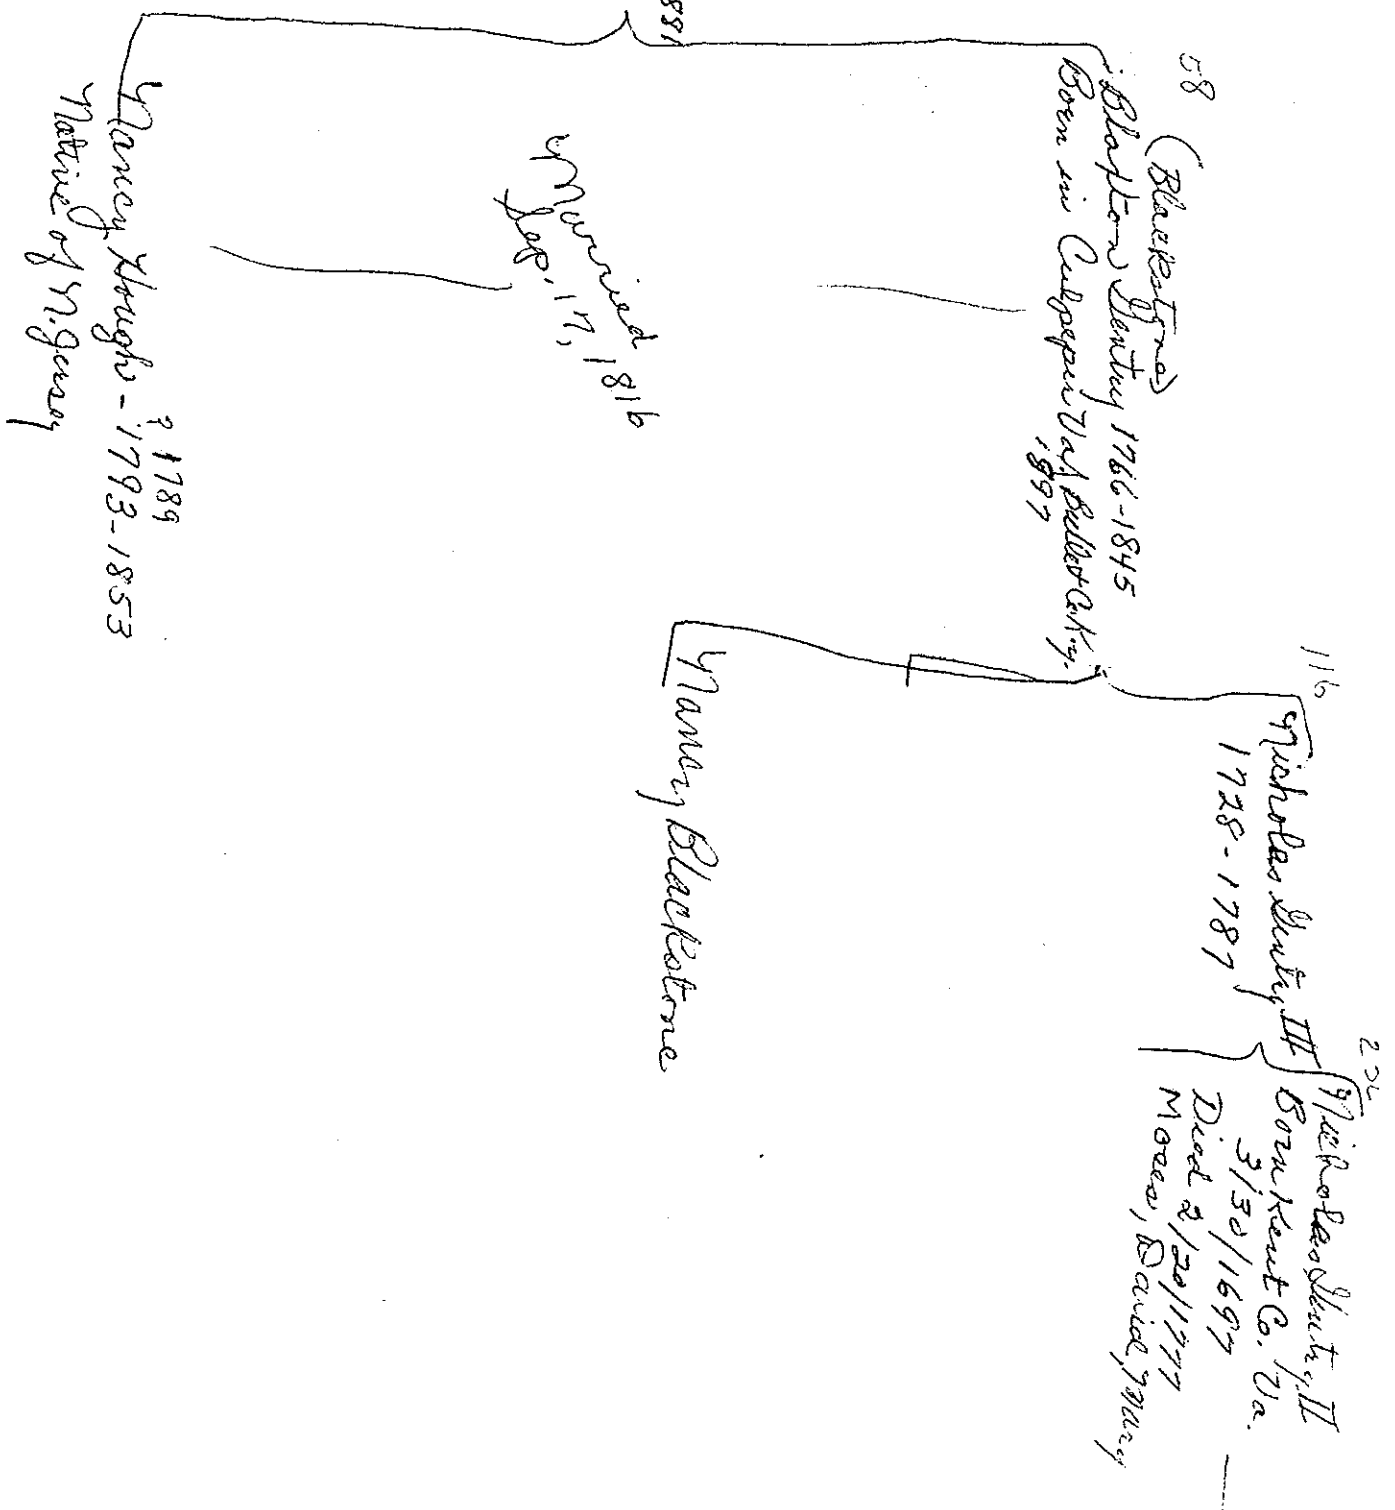 58
(Blackstone)
Blaxton Gentry 1766-1845
Born in Culpeper Va / Bullet Co. Ky.
1897
Married
Sep. 17, 1816
? 1789
Nancy Hough - 1793-1853
Native of N. Jersey
116
Nicholas Gentry III
1728-1787
Nancy Blackstone
Nicholas Gentry II
Born Kent Co. Va.
3/30/1697
Died 2/20/1777
Moses, David, Mary